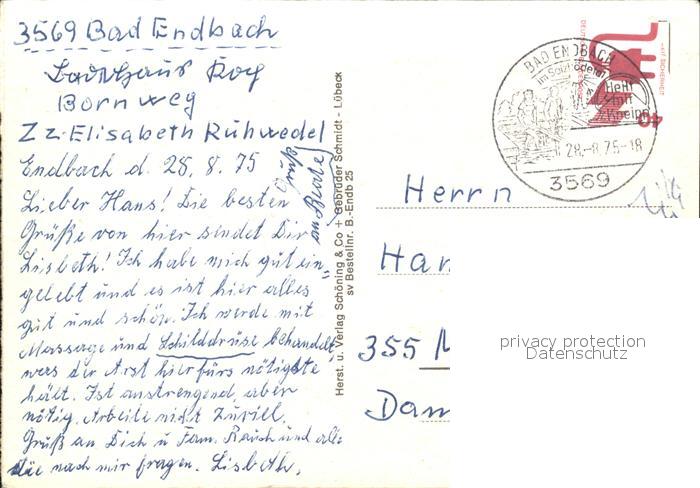 3569 Bad Endbach
Landhaus Koch
Bornweg
Z Z. Elisabeth Rühwedel
Endbach d. 28.8.75
Lieber Hans! Die besten
Grüße von hier sendet Dir
Lisbeth! Ich habe mich gut ein=
gelebt und es ist hier alles
gut und schön. Ich werde mit
Massage und Schilddrüse behandelt,
was der Arzt hier fürs nötigste
hält. Ist anstrengend, aber
nötig. Arbeite nicht zuviel.
Gruß an Dich u Fam. Rauch und alle
die nach mir fragen. Lisbeth.
Gruß
an
Herst. u. Verlag Schöning & Co + Gebrüder Schmidt - Lübeck
sv Bestellnr. B.-Endb 25
BAD ENDBACH
im Salzbödetal
Heilt
mit
Kneipp
28.-8.75-18
3569
40
Herrn
Han
355 M
Dam
privacy protection
Datenschutz